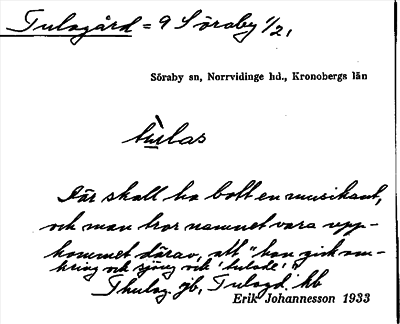 Tulsgård = 9 Söraby 1/2,
Söraby sn, Norrvidinge hd., Kronobergs län
tu̱las
Där skall ha bott en musikant,
och man tror namnet vara upp-
kommet därav, att "han gick om-
kring och sjöng och 'tulade'."
Thulsg. jb, Tulsgd. kb
Erik Johannesson 1933